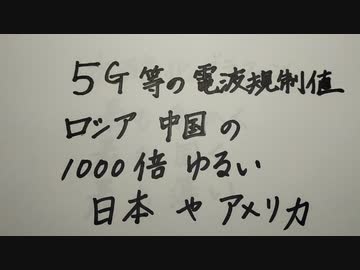 5G等の電波規制値
ロシア 中国 の
1000倍 ゆるい
日本 や アメリカ